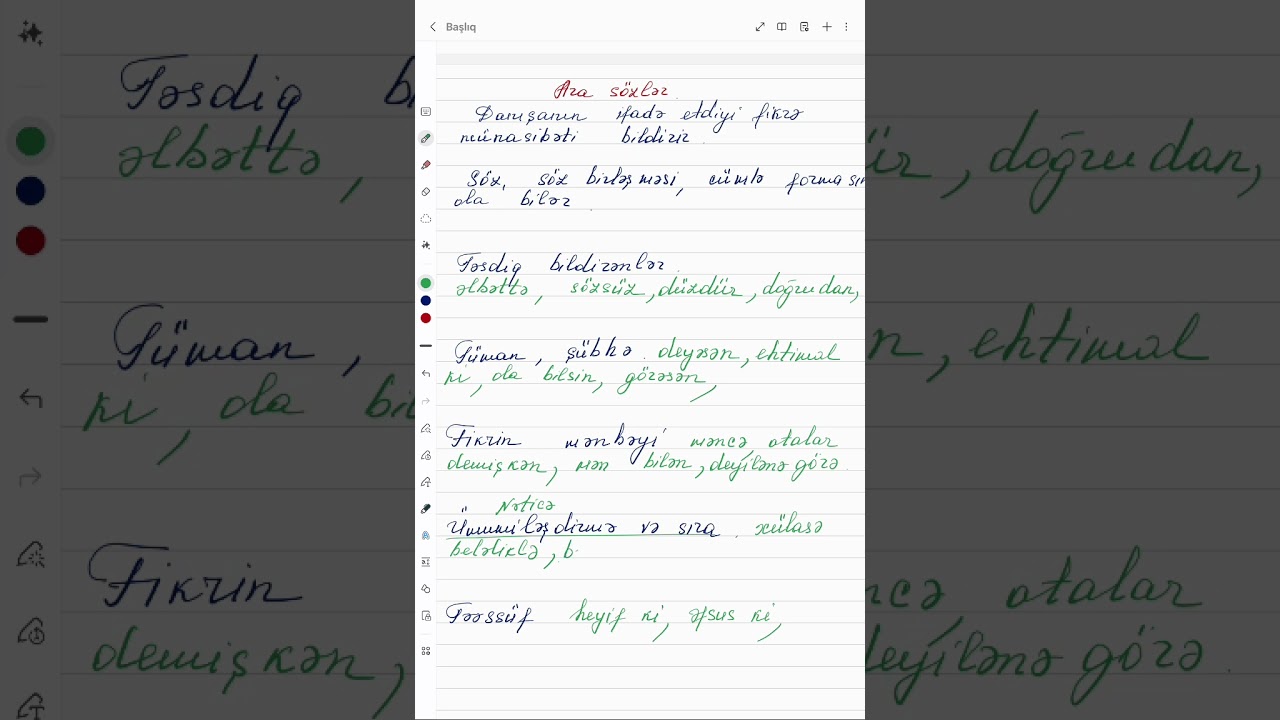 Başlıq
Ara sözlər.
Danışanın ifadə etdiyi fikrə
münasibəti bildirir.
Söz, söz birləşməsi, cümlə formasın
ola bilər.
Təsdiq bildirənlər.
əlbəttə, sözsüz, düzdür, doğrudan,
Güman, şübhə. deyəsən, ehtimal
ki, ola bilsin, görəsən,
Fikrin mənbəyi məncə, atalar
demişkən, mən bilən, deyilənə görə.
Nəticə
Ümumiləşdirmə və sıra. xülasə
beləliklə, b
Təəssüf heyif ki, əfsus ki,